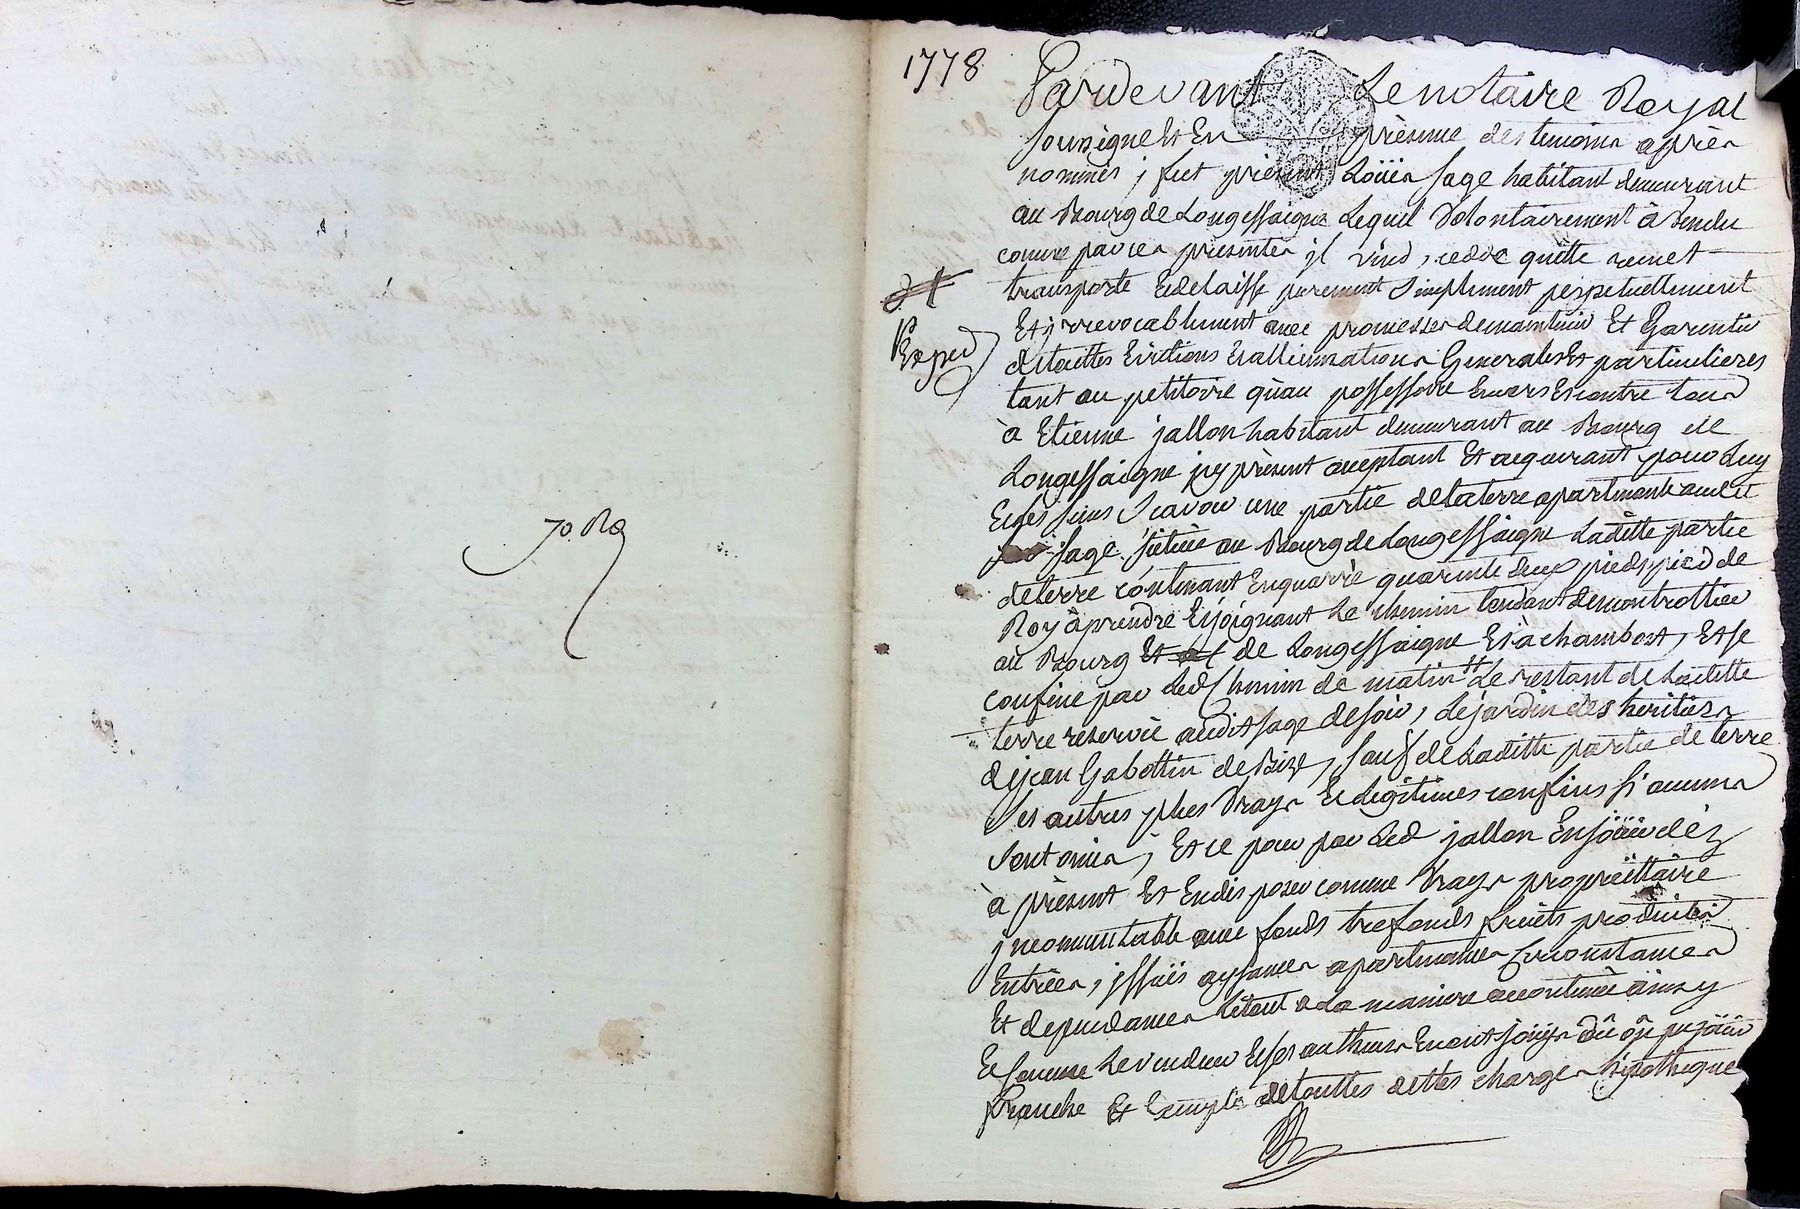 70 Ro
1778
Pardevant Le notaire Royal
soussigné Et En présence des temoins après
nommés, fut présent Loüis sage habitant demeurant
au Bourg de Longessaigne Lequel Volontairement à Vendu
comme par ces présentes il vend, cedde quitte remet
transporte Et delaisse purement simplement perpetuellement
Et irrevocablement avec promesses de maintenir Et Garentir
Exped
de touttes Evictions Et alliennations Generales Et particulieres
tant au petitoire qu'au possessoire Envers Et contre tous
à Etienne jallon habitant demeurant au Bourg de
Longessaigne icy présent aceptant Et acquerant pour Luy
Et les siens Scavoir une partie de la terre apartenante audit
sage sitüée au Bourg de Longessaigne Laditte partie
de terre contenant En quarré quarente deux pieds pied de
Roy à prendre Et joignant Le chemin tendant de montrottier
au Bourg Et de Longessaigne Et à chambost, Et se
confine par Led chemin de matin Le restant de Laditte
terre reservée audit sage de soir, Le jardin des heritiers
de jean Gabottin de Bize, sauf de Laditte partie de terre
ses autres plus Vrays Et Legitimes confins si aucuns
sont omis, Et ce pour par Led jallon En joüir dès
à présent Et En disposer comme Vrays propriettaire
incommutable avec fonds trefonds fruits produits
Entrées, issües aysances apartenances Circonstances
Et dependances Le tout a La maniere accoutumée ainsy
Et comme Le vendeur Et ses autheurs En ont joüys dû où pu joüir
franche Et Exempte de touttes dettes charges hipotheque